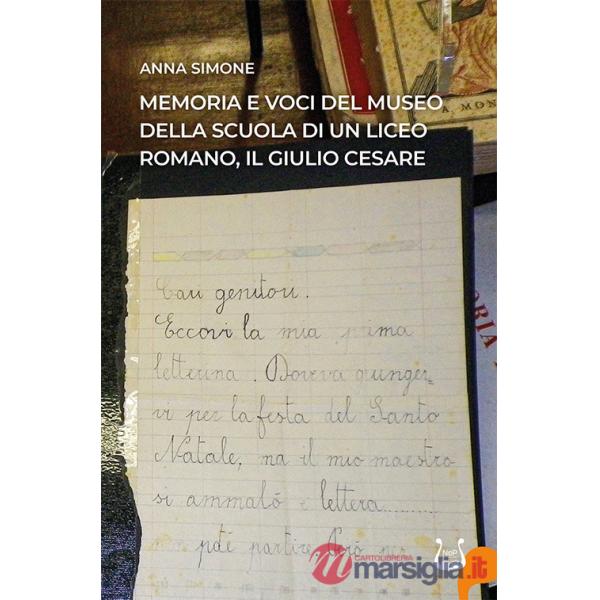 ANNA SIMONE
MEMORIA E VOCI DEL MUSEO
DELLA SCUOLA DI UN LICEO
ROMANO, IL GIULIO CESARE
A. MON
ORIA
Cari genitori.
Eccovi la mia prima
letterina. Doveva giunger=
vi per la festa del Santo
Natale, ma il mio maestro
si ammalò e lettera..........
non poté partire. Però per
NeP
CARTOLIBRERIA
marsiglia.it